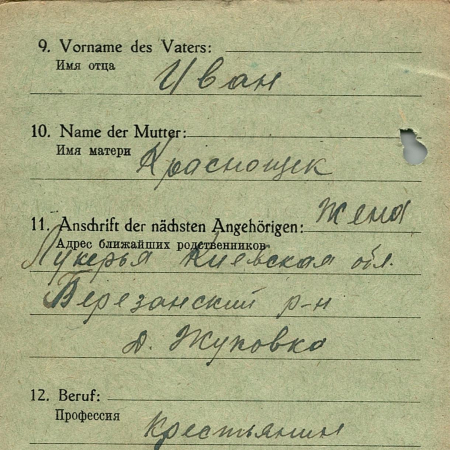 9. Vorname des Vaters:
Имя отца
Иван
10. Name der Mutter:
Имя матери
Краснощек
11. Anschrift der nächsten Angehörigen: Жена
Адрес ближайших родственников
Лукерья Киевская обл.
Березанский р-н
д. Жуковка
12. Beruf:
Профессия
крестьянин